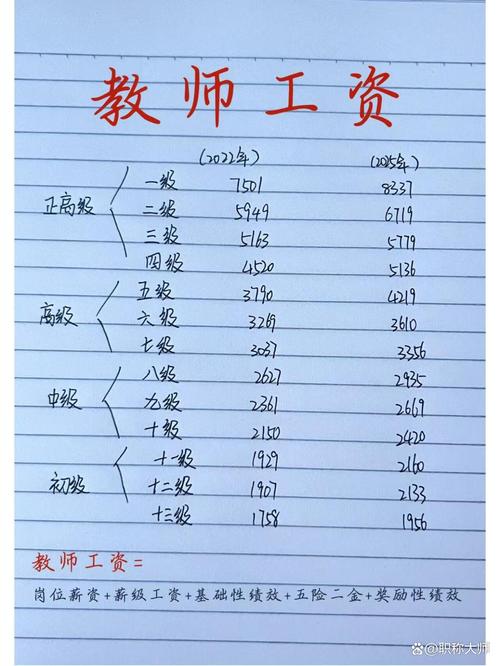 教师工资
(2022年) (2025年)
正高级 一级 7501 8337
二级 5949 6719
三级 5163 5779
四级 4520 5136
高级 五级 3790 4219
六级 3269 3610
七级 3037 3356
中级 八级 2627 2935
九级 2361 2669
十级 2150 2420
初级 十一级 1929 2160
十二级 1907 2133
十三级 1758 1956
教师工资=
岗位薪资+薪级工资+基础性绩效+五险二金+奖励性绩效
@职称大师